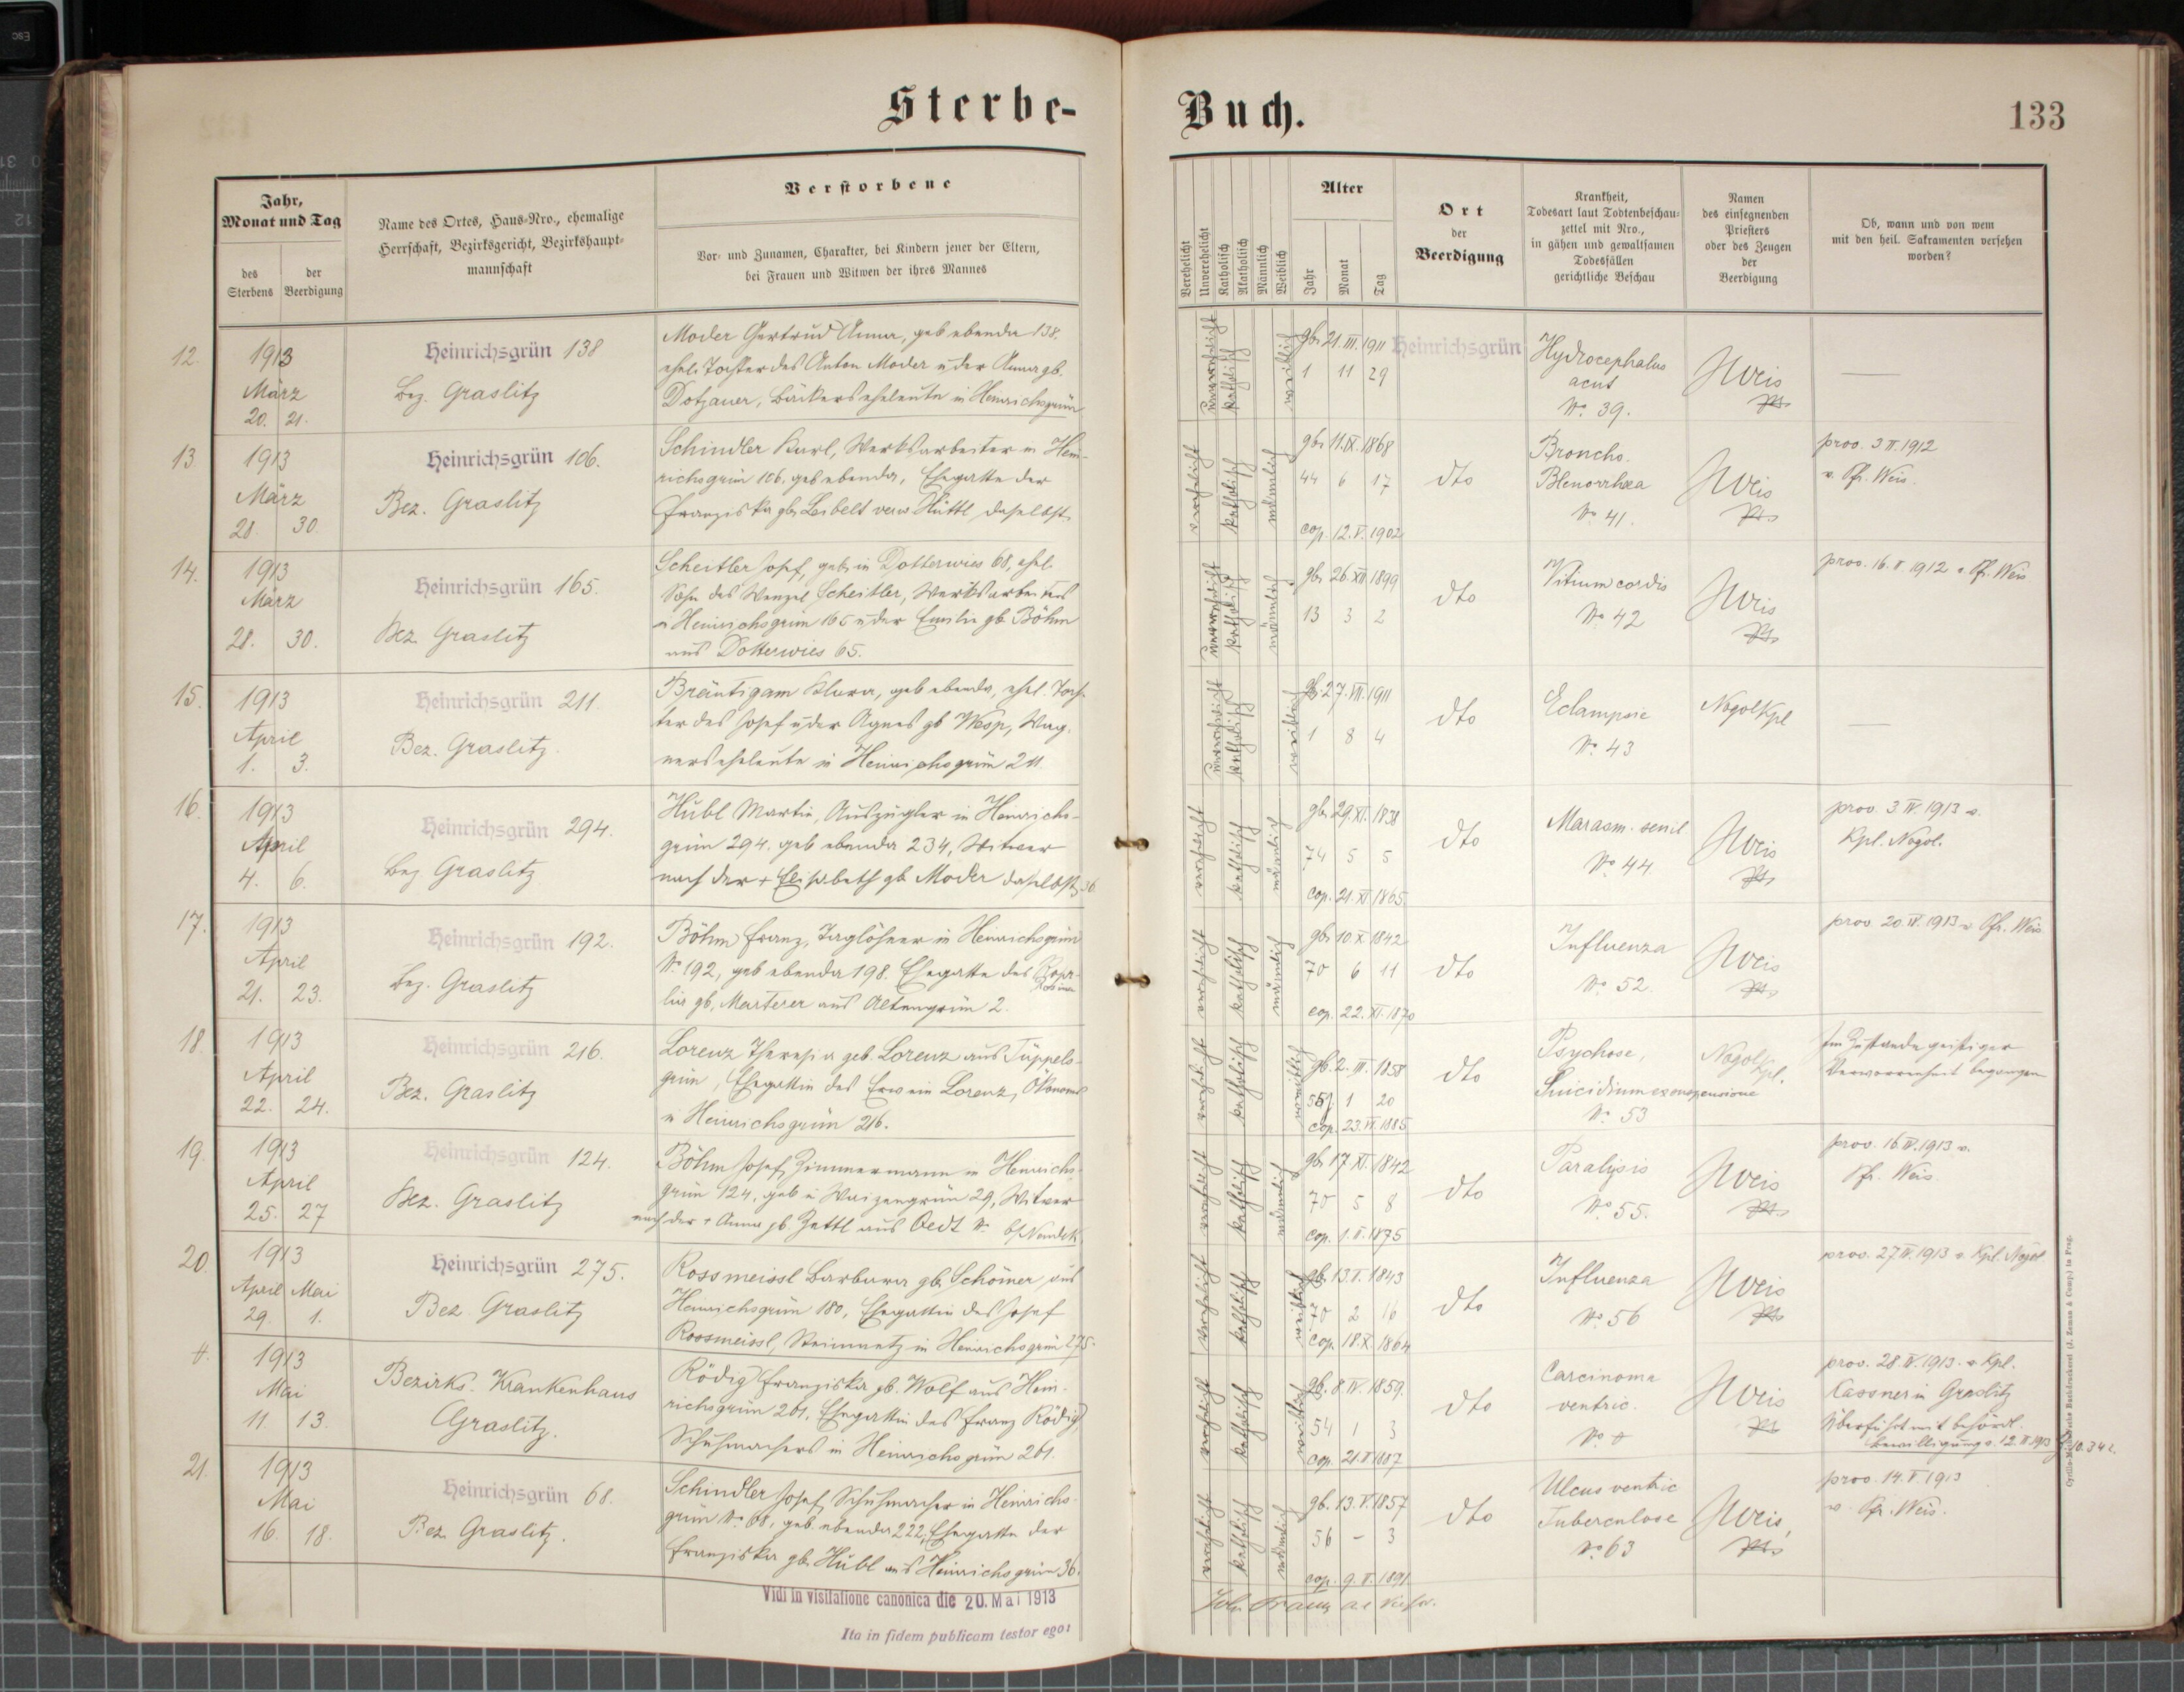 Sterbe-
Buch.
133
Jahr,
Monat und Tag
des
Sterbens
der
Beerdigung
Name des Ortes, Haus-Nro., ehemalige
Herrschaft, Bezirksgericht, Bezirkshaupt-
mannschaft
Verstorbene
Vor- und Zunamen, Charakter, bei Kindern jener der Eltern,
bei Frauen und Witwen der ihres Mannes
Verehelicht
Unverehelicht
Katholisch
Akatholisch
Männlich
Weiblich
Alter
Jahr
Monat
Tag
Ort
der
Beerdigung
Krankheit,
Todesart laut Todtenbeschau-
zettel mit Nro.,
in gähen und gewaltsamen
Todesfällen
gerichtliche Beschau
Namen
des einsegnenden
Priesters
oder des Zeugen
der
Beerdigung
Ob, wann und von wem
mit den heil. Sakramenten versehen
worden?
12.
1913
März
20. 21.
Heinrichsgrün 138
Bez. Graslitz
Moder Gertrud Anna, geb ebenda 138.
ehel. Tochter des Anton Moder u der Anna gb.
Dotzauer, Bäckerseheleute in Heinrichsgrün
unverehelicht
katholisch
weiblich
gb. 21. III. 1911
1 11 29
Heinrichsgrün
Hydrocephalus
acut
No. 39.
Weis
13.
1913
März
28. 30.
Heinrichsgrün 106.
Bez. Graslitz
Schindler Karl, Werksarbeiter in Hein-
richsgrün 106, geb ebenda, Ehegatte der
Franziska gb. Leibelt verw Hüttl daselbst
verehelicht
katholisch
männlich
gb. 11. IX. 1868
44 6 17
cop. 12. V. 1902
dto
Broncho.
Blenorrhœa
No 41.
Weis
prov. 3 II. 1912
v. Pfr. Weis.
14.
1913
März
28. 30.
Heinrichsgrün 165.
Bez. Graslitz
Scheitler Josef, geb. in Dotterwies 68, ehel.
Sohn des Wenzel Scheitler, Werksarbeiters
in Heinrichsgrün 165 u der Emilie gb Böhm
aus Dotterwies 65.
unverehelicht
katholisch
männlich
gb. 26. XII 1899
13 3 2
dto
Vitium cordis
No 42
Weis
prov. 16. V. 1912 v. Pfr. Weis
15.
1913
April
1. 3.
Heinrichsgrün 211.
Bez. Graslitz.
Bräutigam Klara, geb ebenda, ehel. Toch-
ter des Josef u der Agnes gb Wesp, Wag-
nerseheleute in Heinrichsgrün 211
unverehelicht
katholisch
weiblich
gb. 27. VII. 1911
1 8 4
dto
Eclampsie
No. 43
Nogol Kpl
16.
1913
April
4. 6.
Heinrichsgrün 294.
Bez Graslitz
Hübl Martin, Auszügler in Heinrichs-
grün 294. geb ebenda 234, Witwer
nach der + Elisabeth gb Moder daselbst 36
verehelicht
katholisch
männlich
gb. 29. XI. 1838
74 5 5
cop. 21. XI 1865
dto
Marasm. senil
No 44
Weis
prov. 3. IV. 1913 v.
Kpl. Nogol.
17.
1913
April
21. 23.
Heinrichsgrün 192.
Bez. Graslitz
Böhm Franz, Taglöhner in Heinrichsgrün
No 192, geb ebenda 198. Ehegatte der
gb. Marterer aus Altengrün 2.
verehelicht
katholisch
männlich
gb. 10 X 1842
70 6 11
cop. 22. XI. 1870
dto
Influenza
No. 52.
Weis
prov 20 IV. 1913 v Pfr. Weis
18.
1913
April
22. 24.
Heinrichsgrün 216.
Bez. Graslitz
Lorenz Theresia geb. Lorenz aus Tüppels-
grün, Ehegattin des Erwein Lorenz, Ökonoms
in Heinrichsgrün 216.
verehelicht
katholisch
weiblich
gb. 2. III. 1858
55 1 20
cop. 23. VI. 1885
dto
Psychose,
Suicidium ex suspensione
No 53
Nogol Kpl.
Im Zustande geistiger
Verworrenheit begangen
19.
1913
April
25. 27
Heinrichsgrün 124.
Bez. Graslitz
Böhm Josef, Zimmermann in Heinrichs-
grün 124, geb in Waizengrün 29, Witwer
nach der + Anna gb. Zettl aus Oedt No 6/Neudek
verehelicht
katholisch
männlich
gb. 17. XI. 1842
70 5 8
cop. 1. II. 1875
dto
Paralysis
No 55.
Weis
prov. 16 IV. 1913 v.
Pfr. Weis
20
1913
April Mai
29. 1.
Heinrichsgrün 275.
Bez. Graslitz
Rossmeissl Barbara gb. Schöner aus
Heinrichsgrün 180, Ehegattin des Josef
Rossmeissl, Steinmetz in Heinrichsgrün 275.
verehelicht
katholisch
weiblich
gb. 13. II. 1843
70 2 16
cop. 18. X. 1864
dto
Influenza
No 56
Weis
prov. 27 IV. 1913 v. Kpl. Nogol
1913
Mai
11. 13.
Bezirks. Krankenhaus
Graslitz.
Rödig Franziska gb. Wolf aus Hein-
richsgrün 261, Ehegattin des Franz Rödig,
Schuhmachers in Heinrichsgrün 261.
verehelicht
katholisch
weiblich
gb. 8 IV. 1859.
54 1 3
cop. 21. V 1887
dto
Carcinoma
ventric.
Weis
prov. 28. IV. 1913. v Kpl.
Kassner in Graslitz
Überführt mit behördl.
Bewilligung v. 12. V. 1913 Z. 10.342.
21.
1913
Mai
16. 18.
Heinrichsgrün 68.
Bez. Graslitz.
Schindler Josef, Schuhmacher in Heinrichs-
grün No 68, geb. ebenda 222, Ehegatte der
Franziska gb. Hübl aus Heinrichsgrün 36.
verehelicht
katholisch
männlich
gb. 13. V. 1857
56 - 3
cop. 9. II. 1891
dto
Ulcus ventric
Tuberculose
No 63
Weis,
prov. 14. V 1913
v. Pfr. Weis.
Vidi in visitatione canonica die 20. Mai 1913
Ita in fidem publicam testor ego: